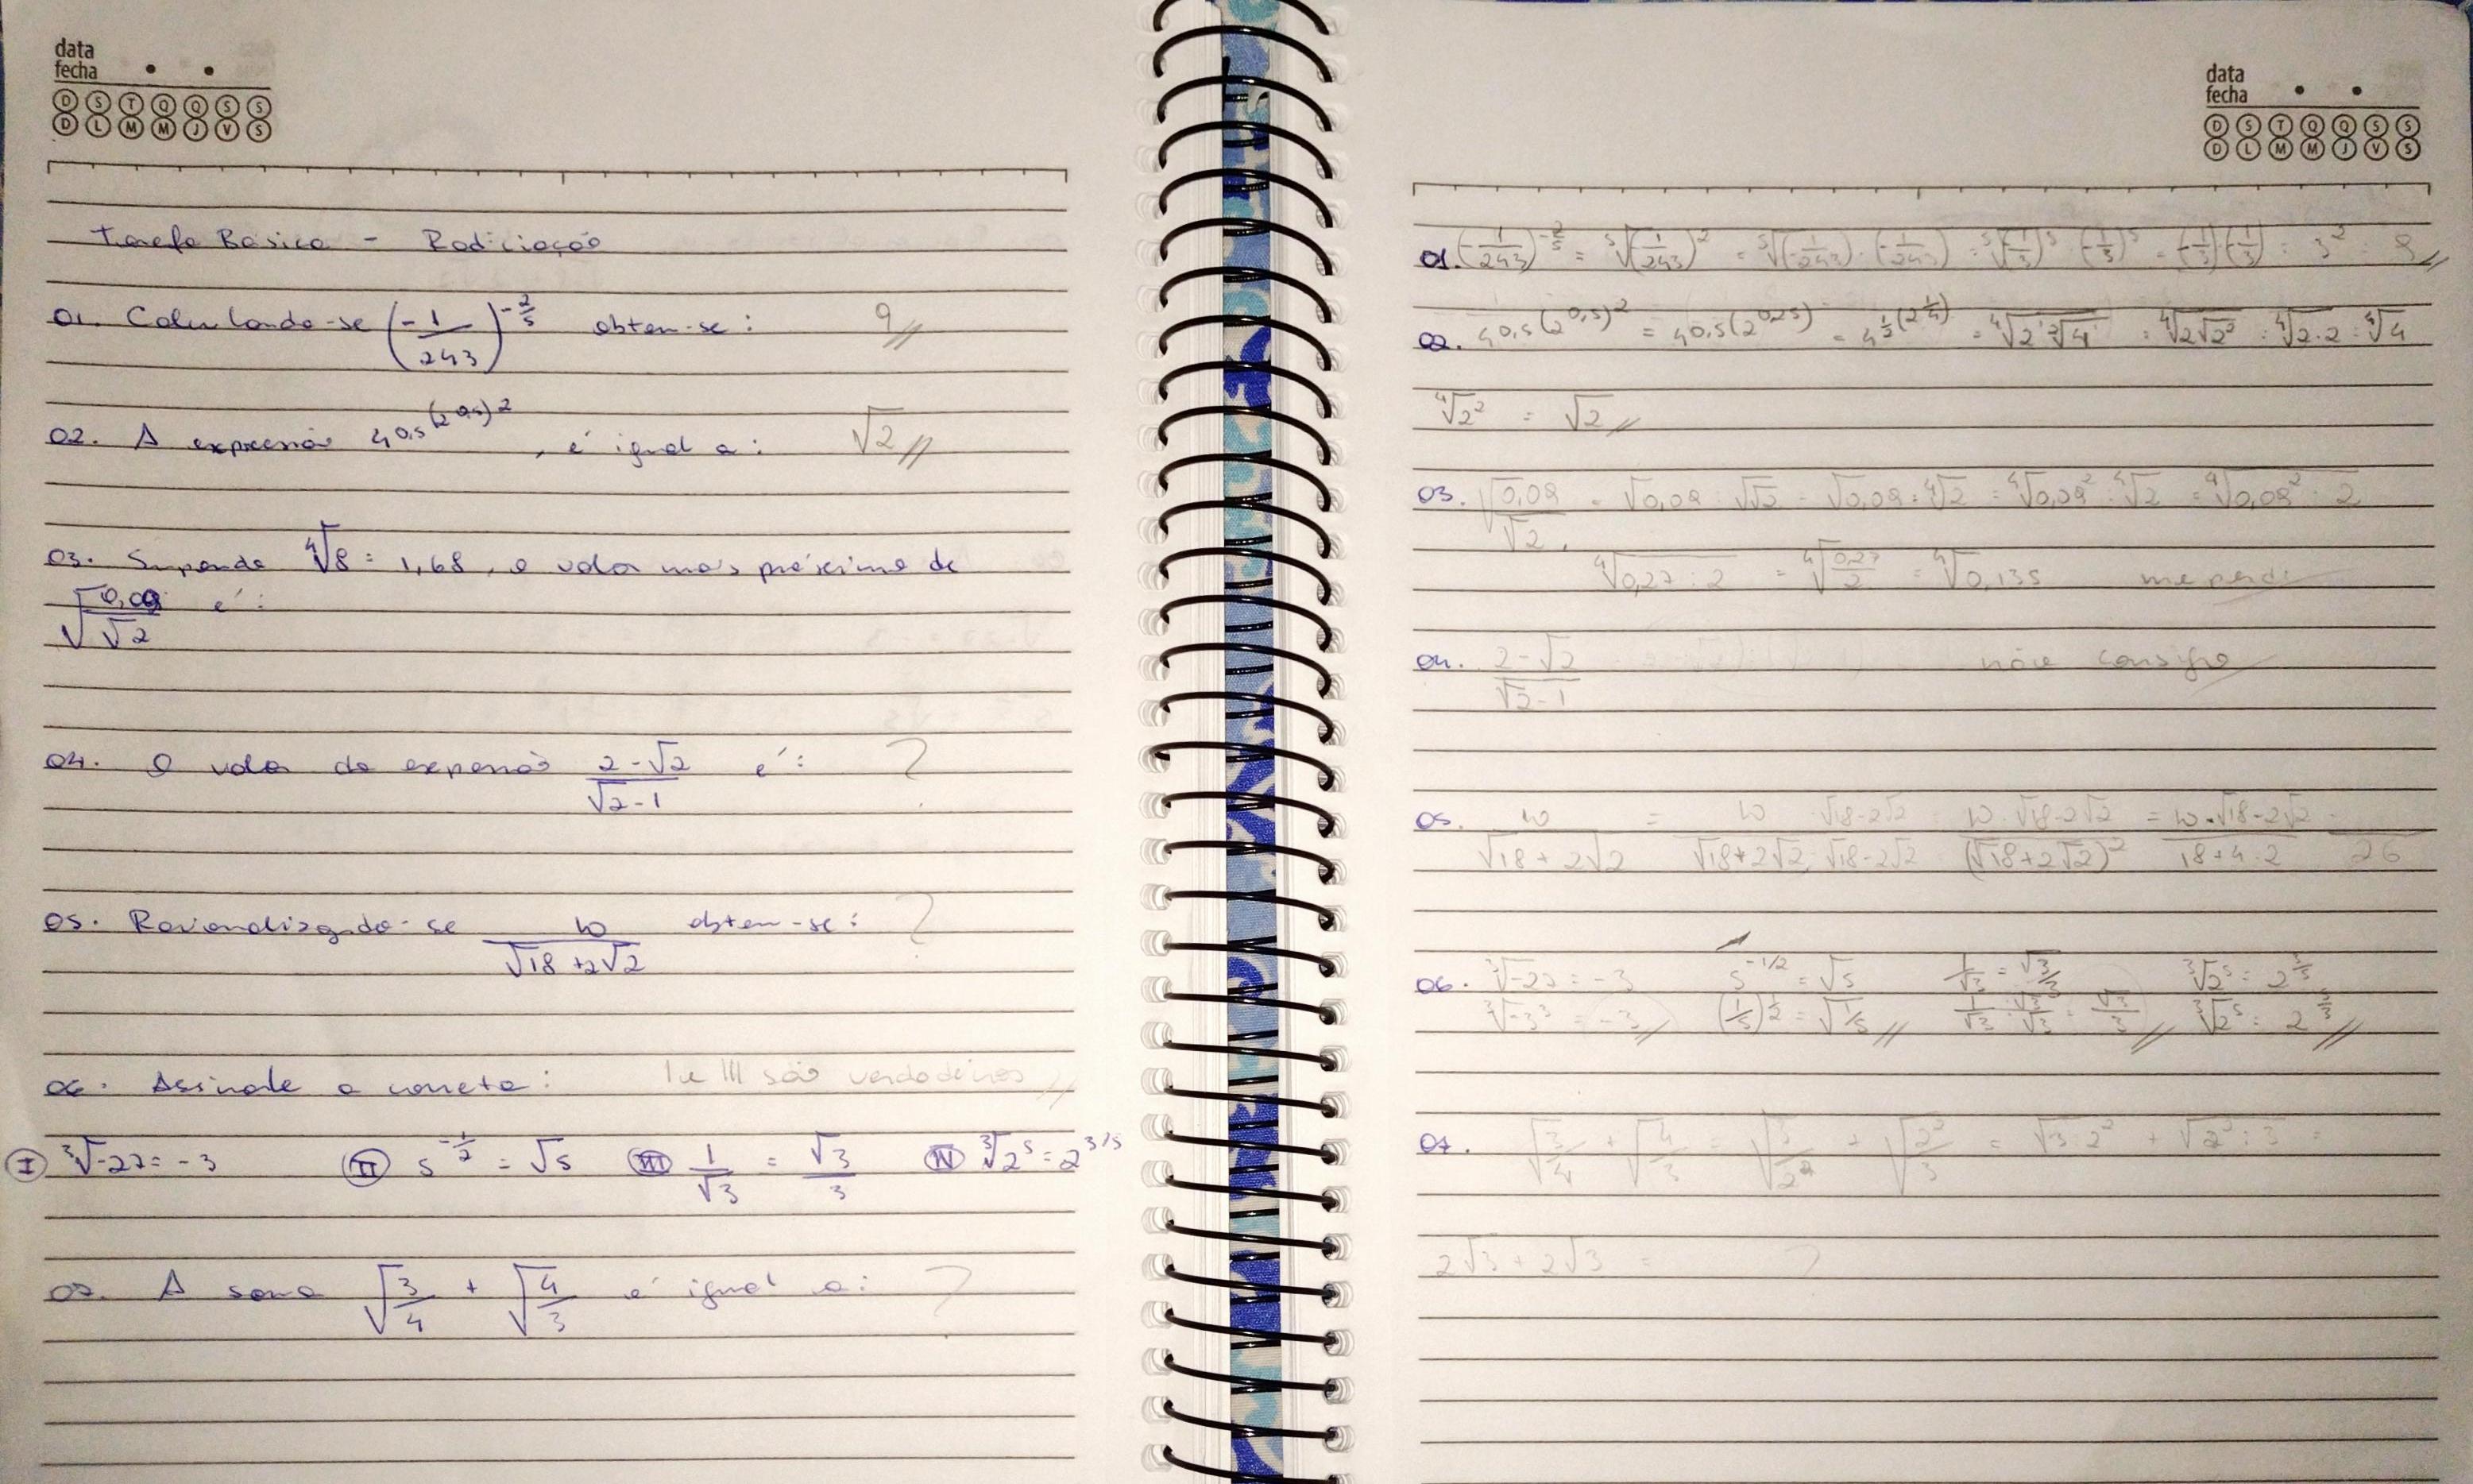 data
fecha
D S T Q Q S S
D L M M J V S
Tarefa Básica - Radiciação
01. Calculando-se (-1/243)^-2/5 obtem-se: 9//
02. A expressão 4^0,5^(2^0,5)^2, é igual a: √2//
03. Supondo ⁴√8 = 1,68, o valor mais próximo de
√(0,09/√2) é:
04. O valor da expressão (2-√2)/(√2-1) é: ?
05. Racionalizando-se 10/(√18+2√2) obtem-se: ?
06. Assinale a correta: I e III são verdadeiras//
I ³√-27 = -3 II 5^-1/2 = √5 III 1/√3 = √3/3 IV ³√2^5 = 2^3/5
07. A soma √(3/4) + √(4/3) é igual a: ?
data
fecha
D S T Q Q S S
D L M M J V S
01. (-1/243)^-2/5 = ⁵√(-1/243)^2 = ⁵√(-1/243)·(-1/243) = ⁵√(-1/3)^5·(-1/3)^5 = (-1/3)(-1/3) = 3^2 = 9//
02. 4^0,5^(2^0,5)^2 = 4^0,5(2^0,25) = 4^1/2(2^1/4) = ⁴√2·²√4 = ⁴√2√2^2 = ⁴√2·2 = ⁴√4
⁴√2^2 = √2//
03. √(0,09/√2) = √0,09 : √√2 = √0,09 : ⁴√2 = ⁴√0,09^2 : ⁴√2 = ⁴√0,09^2 : 2
⁴√0,27 : 2 = ⁴√(0,27/2) = ⁴√0,135 me perdi
04. (2-√2)/(√2-1) não consigo
05. 10/(√18+2√2) = 10/(√18+2√2) · (√18-2√2)/(√18-2√2) = 10·√18-2√2/(√18+2√2)^2 = 10·√18-2√2/(18+4·2) = /26
06. ³√-27 = -3 5^-1/2 = √5 1/√3 = √3/3 ³√2^5 = 2^3/5
³√-3^3 = -3// (1/5)^1/2 = √1/5// 1/√3 · √3/√3 = √3/3// ³√2^5 = 2^5/3//
07. √(3/4) + √(4/3) = √(3/2^2) + √(2^2/3) = √3:2^2 + √2^2:3 =
2√3 + 2√3 = ?